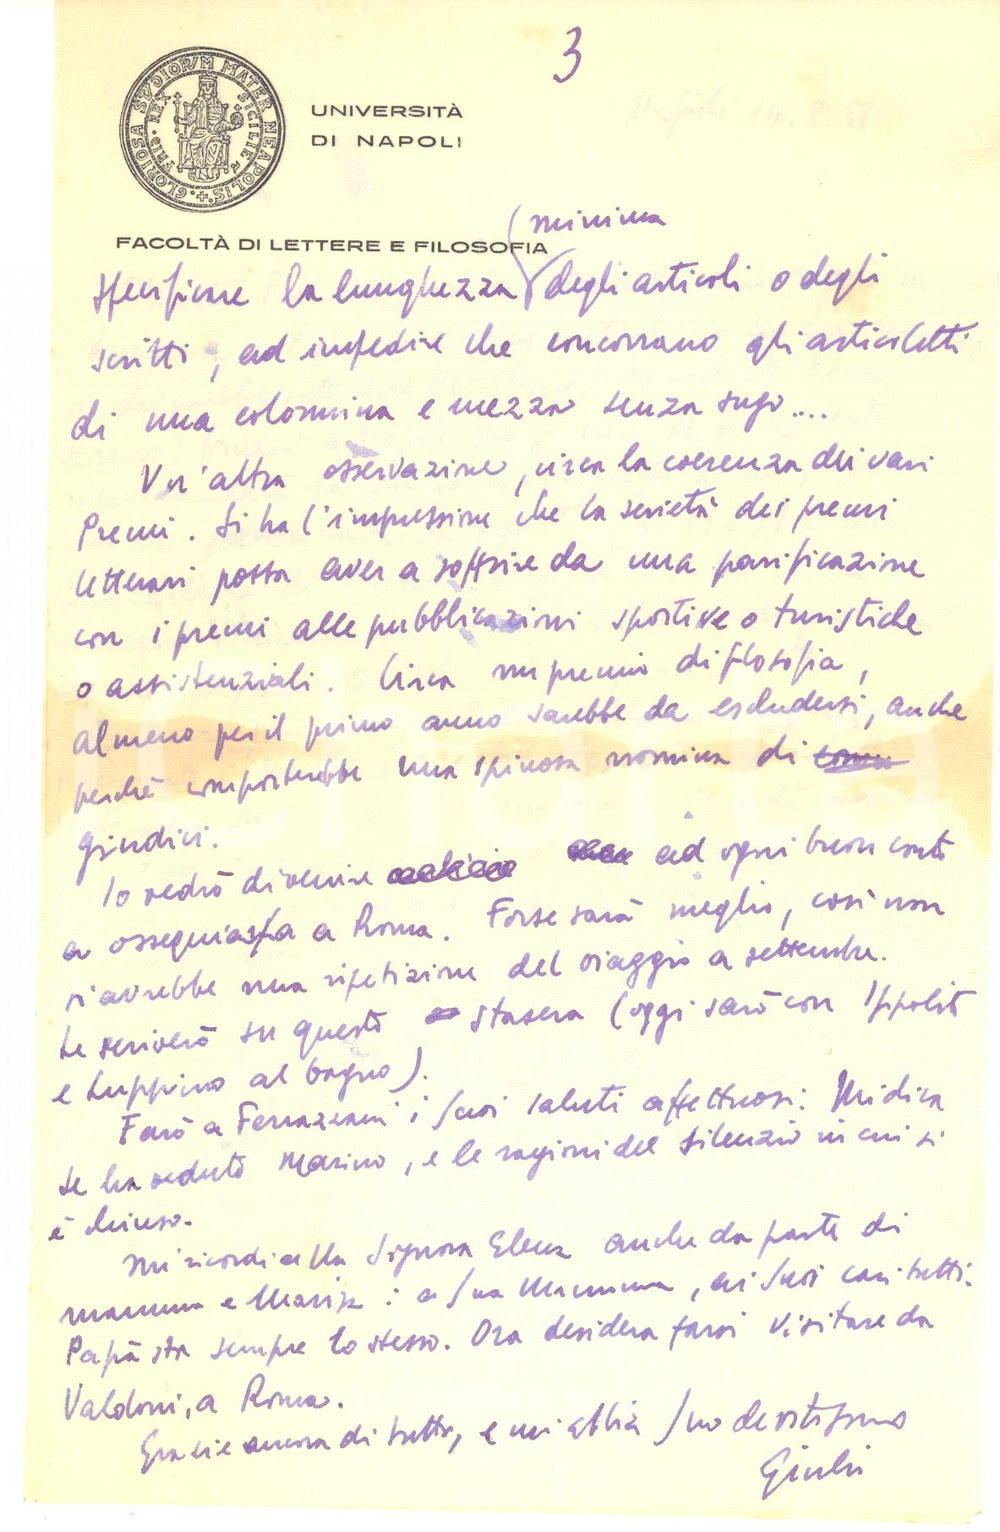 3
GLORIOSA STVDIORVM MATER NEAPOLIS
FRID · REX SICILIE
UNIVERSITÀ
DI NAPOLI
FACOLTÀ DI LETTERE E FILOSOFIA
minima
specificare la lunghezza degli articoli o degli
scritti, ad impedire che concorrano gli articoletti
di una colonnina e mezza senza sugo....
Un'altra osservazione, circa la coerenza dei vari
Premi. Si ha l'impressione che la serietà dei premi
letterari possa aver a soffrire da una parificazione
con i premi alle pubblicazioni sportive o turistiche
o assistenziali. Circa un premio di filosofia,
almeno per il primo anno sarebbe da escludersi, anche
perchè comporterebbe una spinosa nomina di
giudici.
Io vedrò di venire ad ogni buon conto
a ossequiarla a Roma. Forse sarà meglio, così non
si avrebbe una ripetizione del viaggio a settembre.
Le scriverò su questo stasera (oggi sarò con Ippolito
e Luppino al bagno).
Farò a Ferrazzani i suoi saluti affettuosi. Mi dica
se ha veduto Marino, e le ragioni del silenzio in cui si
è chiuso.
Mi ricordi alla Signora Elena anche da parte di
mamma e Marisa: a Sua Mamma, ai Suoi cari tutti.
Papà sta sempre lo stesso. Ora desidera farsi visitare da
Valdoni, a Roma.
Grazie ancora di tutto, e mi abbia Suo devotissimo